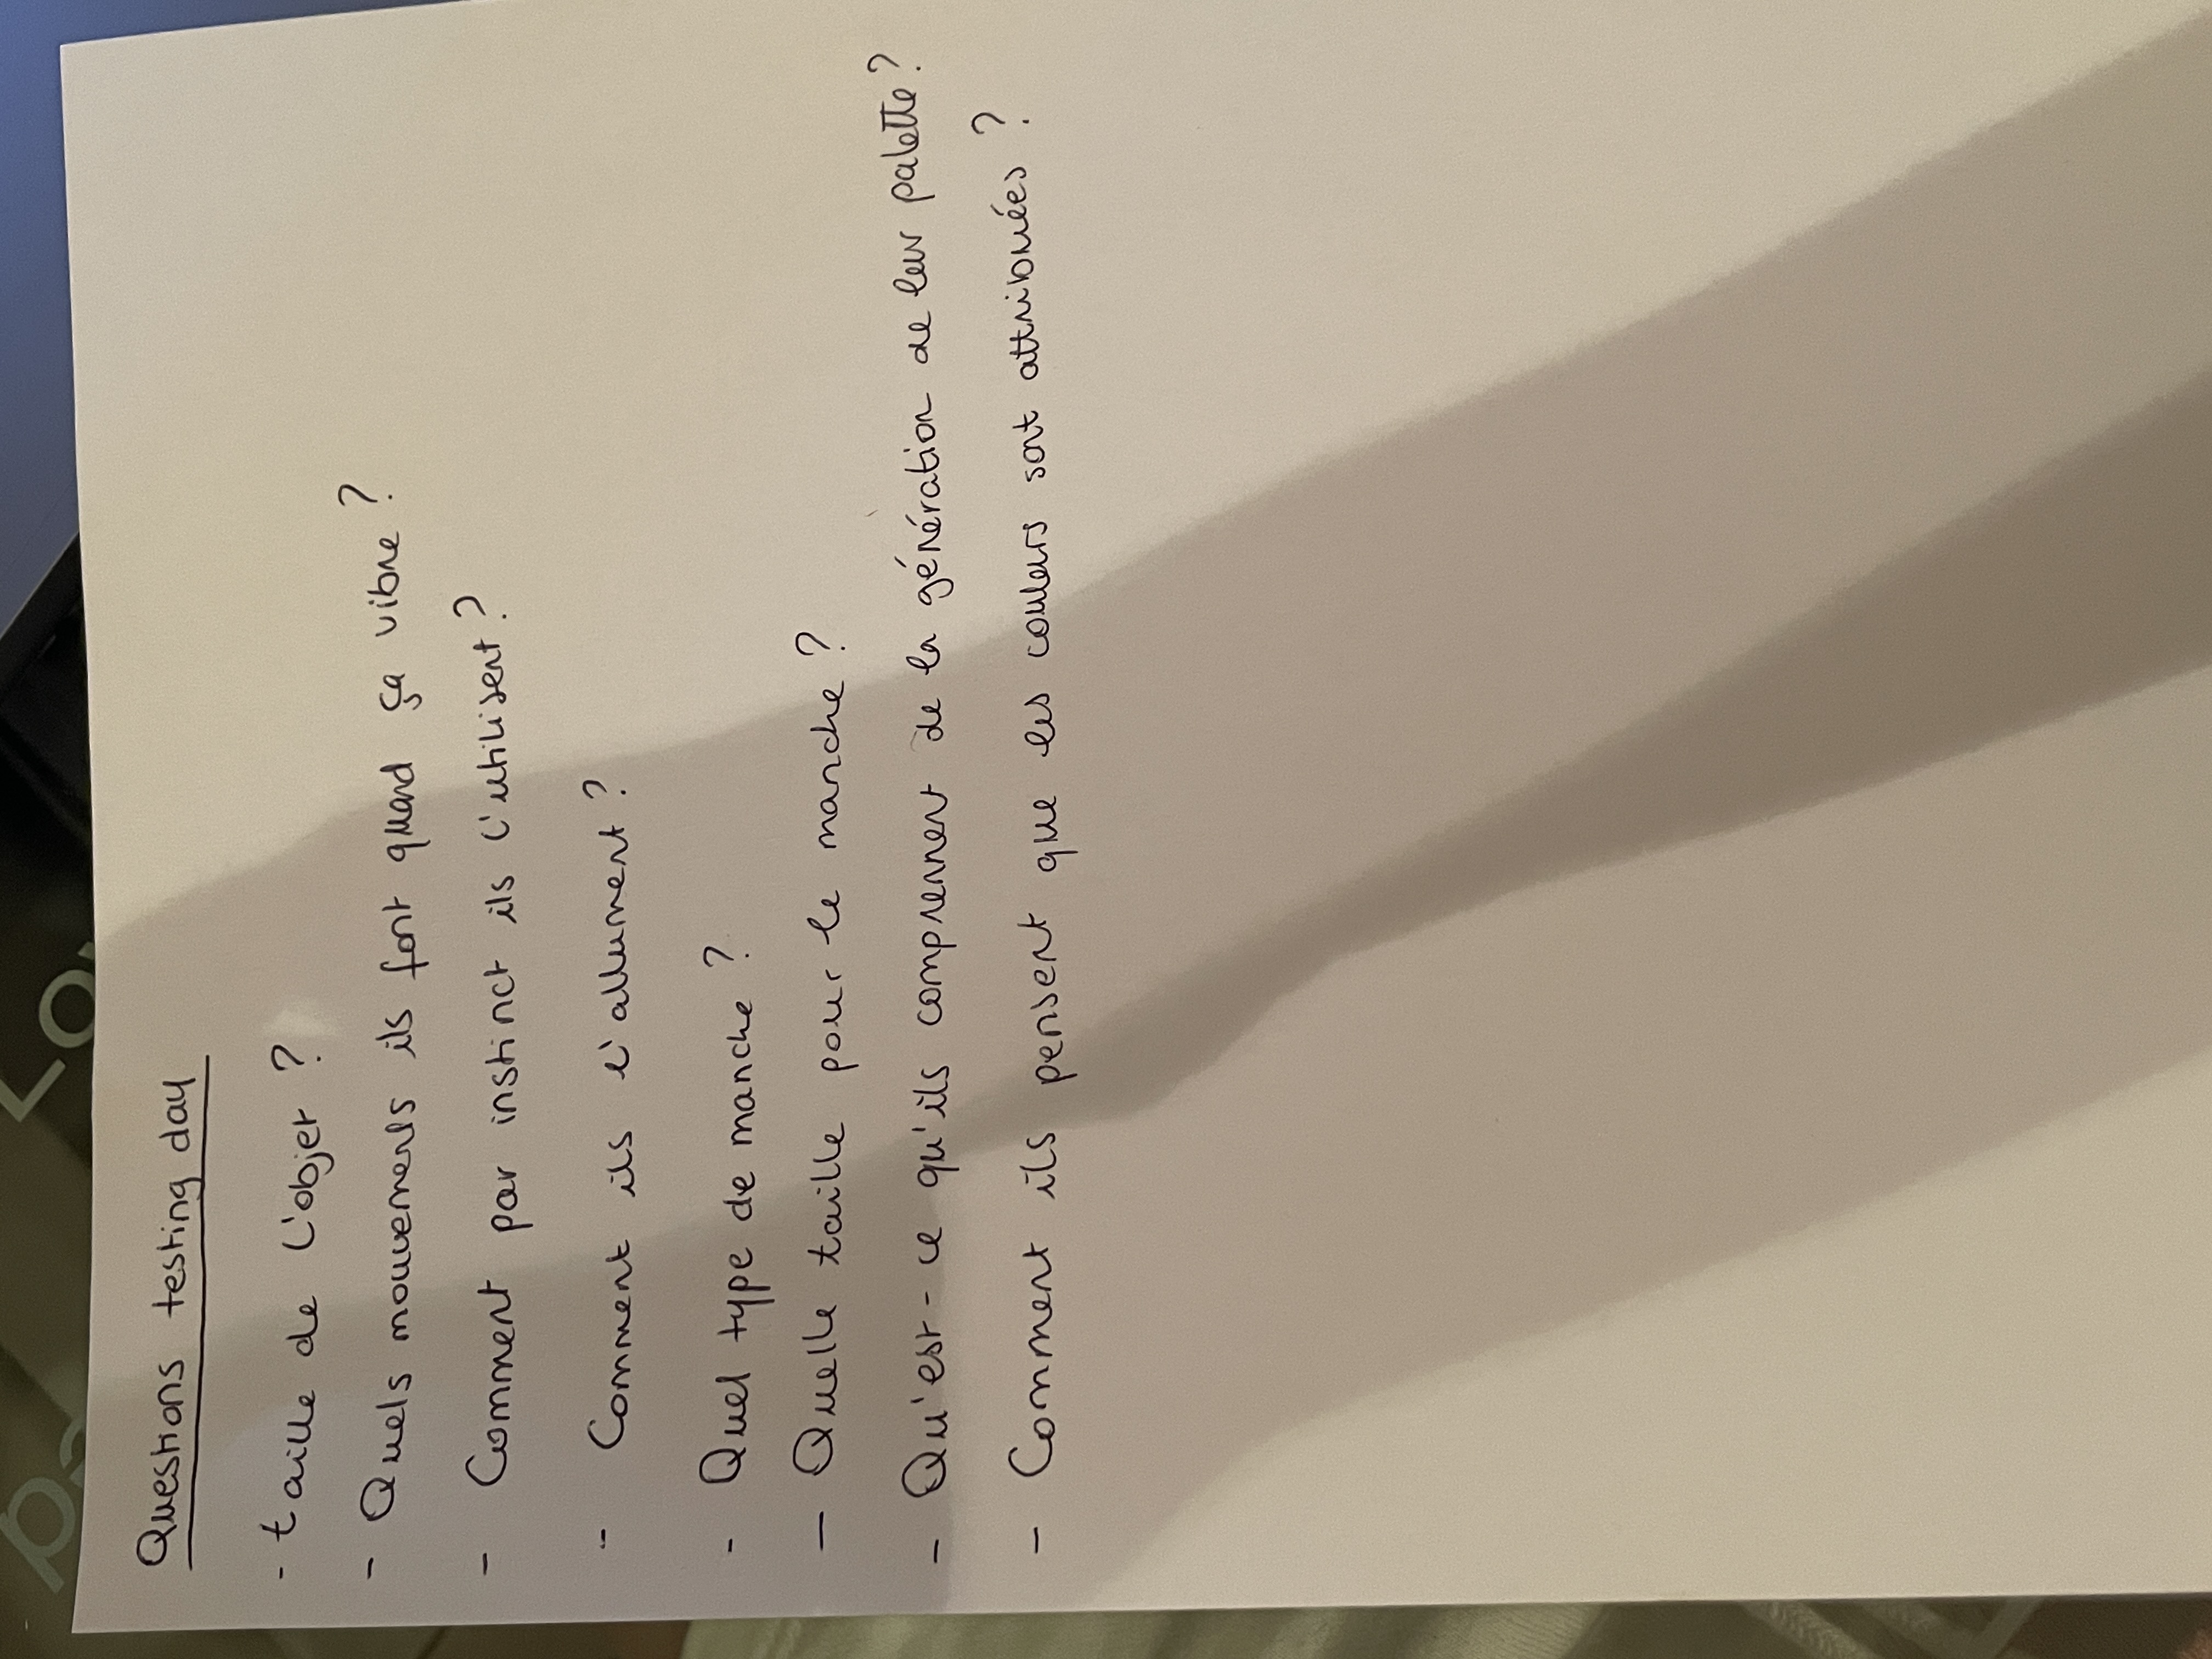 Questions testing day
- taille de l'objet ?
- Quels mouvements ils font quand ça vibre ?
- Comment par instinct ils l'utilisent ?
- Comment ils l'allument ?
- Quel type de manche ?
- Quelle taille pour le manche ?
- Qu'est-ce qu'ils comprennent de la génération de leur palette ?
- Comment ils pensent que les couleurs sont attribuées ?